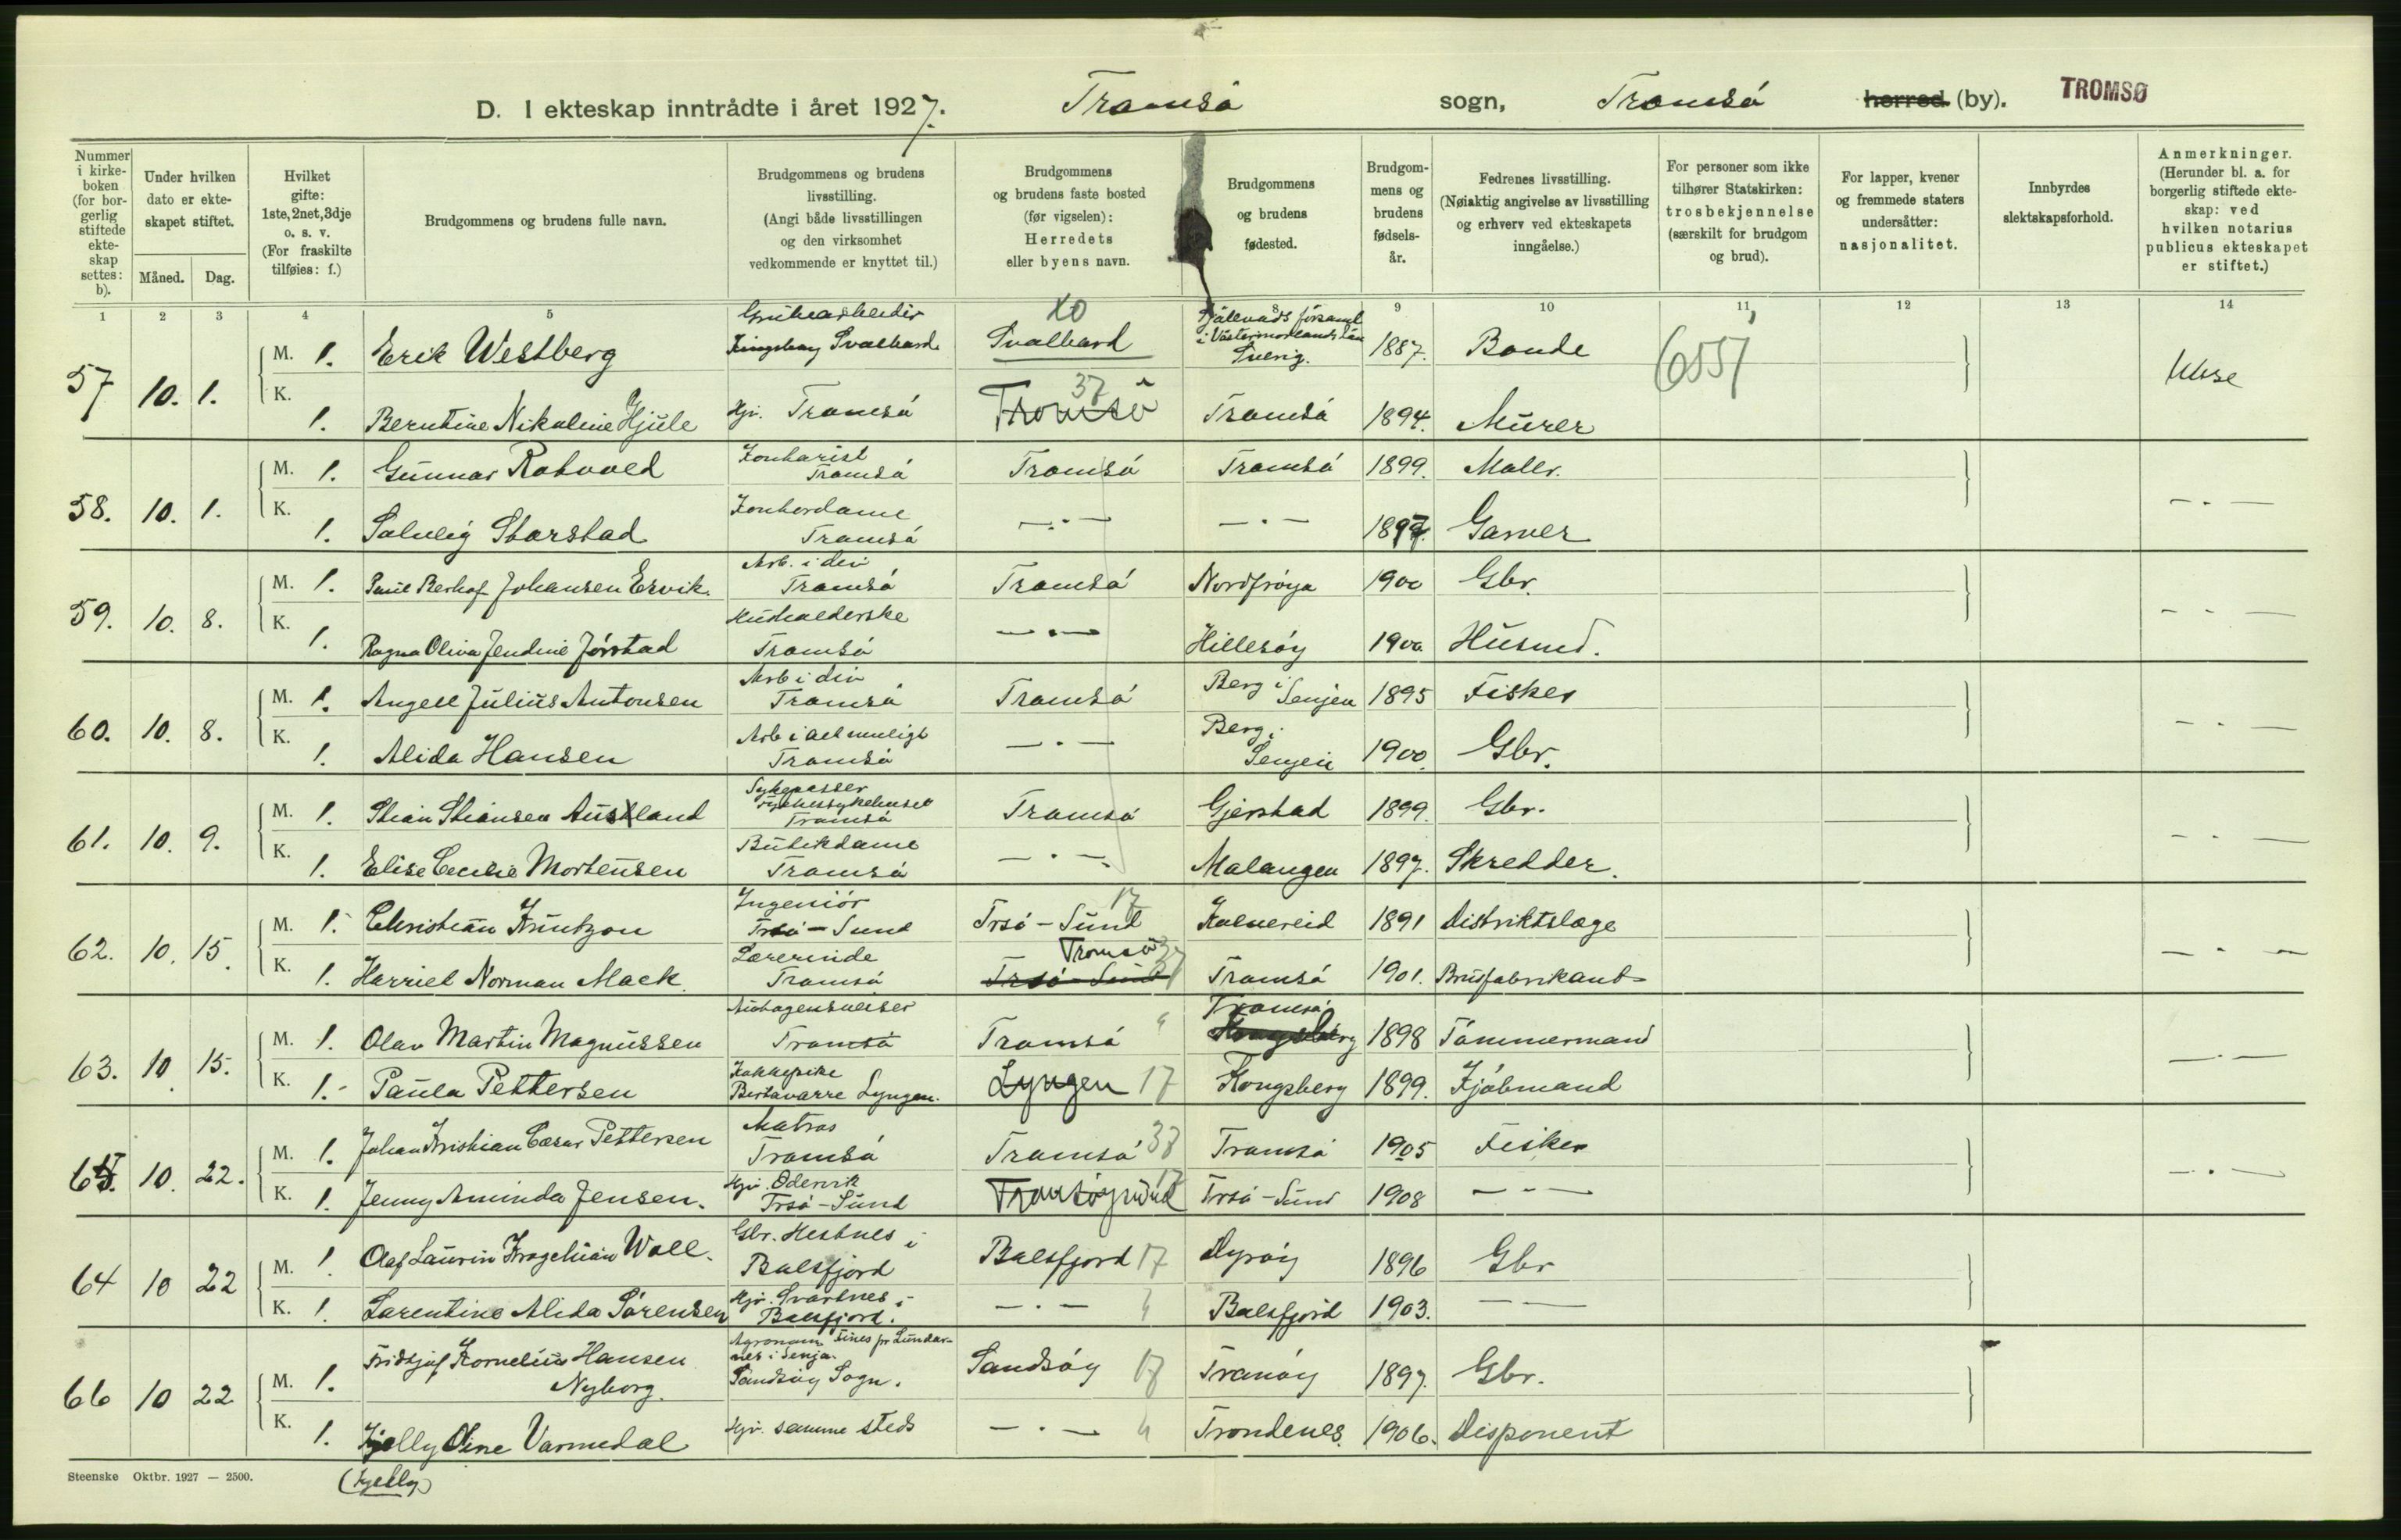 D. I ekteskap inntrådte i året 1927. Tromsö sogn, Tromsö herred (by). TROMSØ
Nummer i kirke-boken (for bor-gerlig stiftede ekte-skap settes: b).
Under hvilken dato er ekte-skapet stiftet.
Måned. Dag.
Hvilket gifte: 1ste, 2net, 3dje o. s. v. (For fraskilte tilføies: f.)
Brudgommens og brudens fulle navn.
Brudgommens og brudens livsstilling. (Angi både livsstillingen og den virksomhet vedkommende er knyttet til.)
Brudgommens og brudens faste bosted (før vigselen): Herredets eller byens navn.
Brudgommens og brudens fødested.
Brudgom-mens og brudens fødsels-år.
Fedrenes livsstilling. (Nøiaktig angivelse av livsstilling og erhverv ved ekteskapets inngåelse.)
For personer som ikke tilhører Statskirken: trosbekjennelse (særskilt for brudgom og brud).
For lapper, kvener og fremmede staters undersåtter: nasjonalitet.
Innbyrdes slektskapsforhold.
Anmerkninger. (Herunder bl. a. for borgerlig stiftede ekte-skap: ved hvilken notarius publicus ekteskapet er stiftet.)
1 2 3 4 5 8 9 10 11 12 13 14
57 10. 1. M. 1. Erik Westberg Grubearbeider Kingsbay Svalbard. Svalbard X0 i Västernorlands län Sverig. 1887. Bonde 6551
K. 1. Berntine Nikoline Hjule Hjv. Tromsö Tromsö 37 Tromsö 1894. Murer
58. 10. 1. M. 1. Gunnar Rotvold Kontorist Tromsö Tromsö Tromsö 1899. Maler.
K. 1. Solveig Storstad Kontordame Tromsö — " — — " — 1897. Garver — " —
59. 10. 8. M. 1. Paul Berhof Johansen Ervik. Arb. i div Tromsö Tromsö Nordfröya 1900 Gbr.
K. 1. Ragna Oliva Jendine Jörstad Husholderske Tromsö — " — Hillesöy 1900. Husmd. — " —
60. 10. 8. M. 1. Angell Julius Antonsen Arb i div Tromsö Tromsö Berg i Senjen 1895 Fisker
K. 1. Alida Hansen Arb i alt muligt Tromsö — " — Berg i Senjen 1900. Gbr. — " —
61. 10. 9. M. 1. Stian Stiansen Ausland Sykepasser Tromsö Tromsö Gjerstad 1899. Gbr.
K. 1. Elise Cecilie Mortensen Butikdame Tromsö — " — Malangen 1897. Skredder. — " —
62. 10. 15. M. 1. Christian Küntzon Ingeniör Trsö - Sund Trsö - Sund 17 1891 Distriktslæge
K. 1. Harriet Norman Mack. Lærerinde Tromsö Tromsö 37 Trsö - Sund Tromsö 1901. Brusfabrikant — " —
63. 10 15. M. 1. Olav Martin Magnussen Tromsö Tromsö Tromsö Kongsberg 1898 Tömmermand
K. 1. Paula Pettersen Kokkepike Birtavarre Lyngen. Lyngen 17 Kongsberg 1899. Kjöbmand — " —
65. 10. 22. M. 1. Johan Kristian Cæsar Pettersen Matros Tromsö Tromsö 37 Tromsö 1905 Fisker
K. 1. Jenny Aminda Jensen. Hjv. Odervik Trsö - Sund Tromsöysund 17 Trsö - Sund 1908 — " — — " —
64 10 22 M. 1. Olaf Laurin Krogelius Woll. Gbr. Hestnes i Balsfjord Balsfjord 17 Dyröy 1896 Gbr
K. 1. Larentine Alida Sörensen Hjv. Svartnes i Balsfjord. — " — Balsfjord 1903. — " —
66 10 22 M. 1. Fridtjof Kornelius Hansen Nyborg. Agronom Finnes pr Lundarnes i Senja. Sandsöy Sogn. Sandsöy 17 Tranöy 1897. Gbr.
K. 1. Kjelly Oline Varmedal Hjv. samme steds — " — Trondenes. 1906. Disponent
Steenske Oktbr. 1927 — 2500.
(Kjelly)